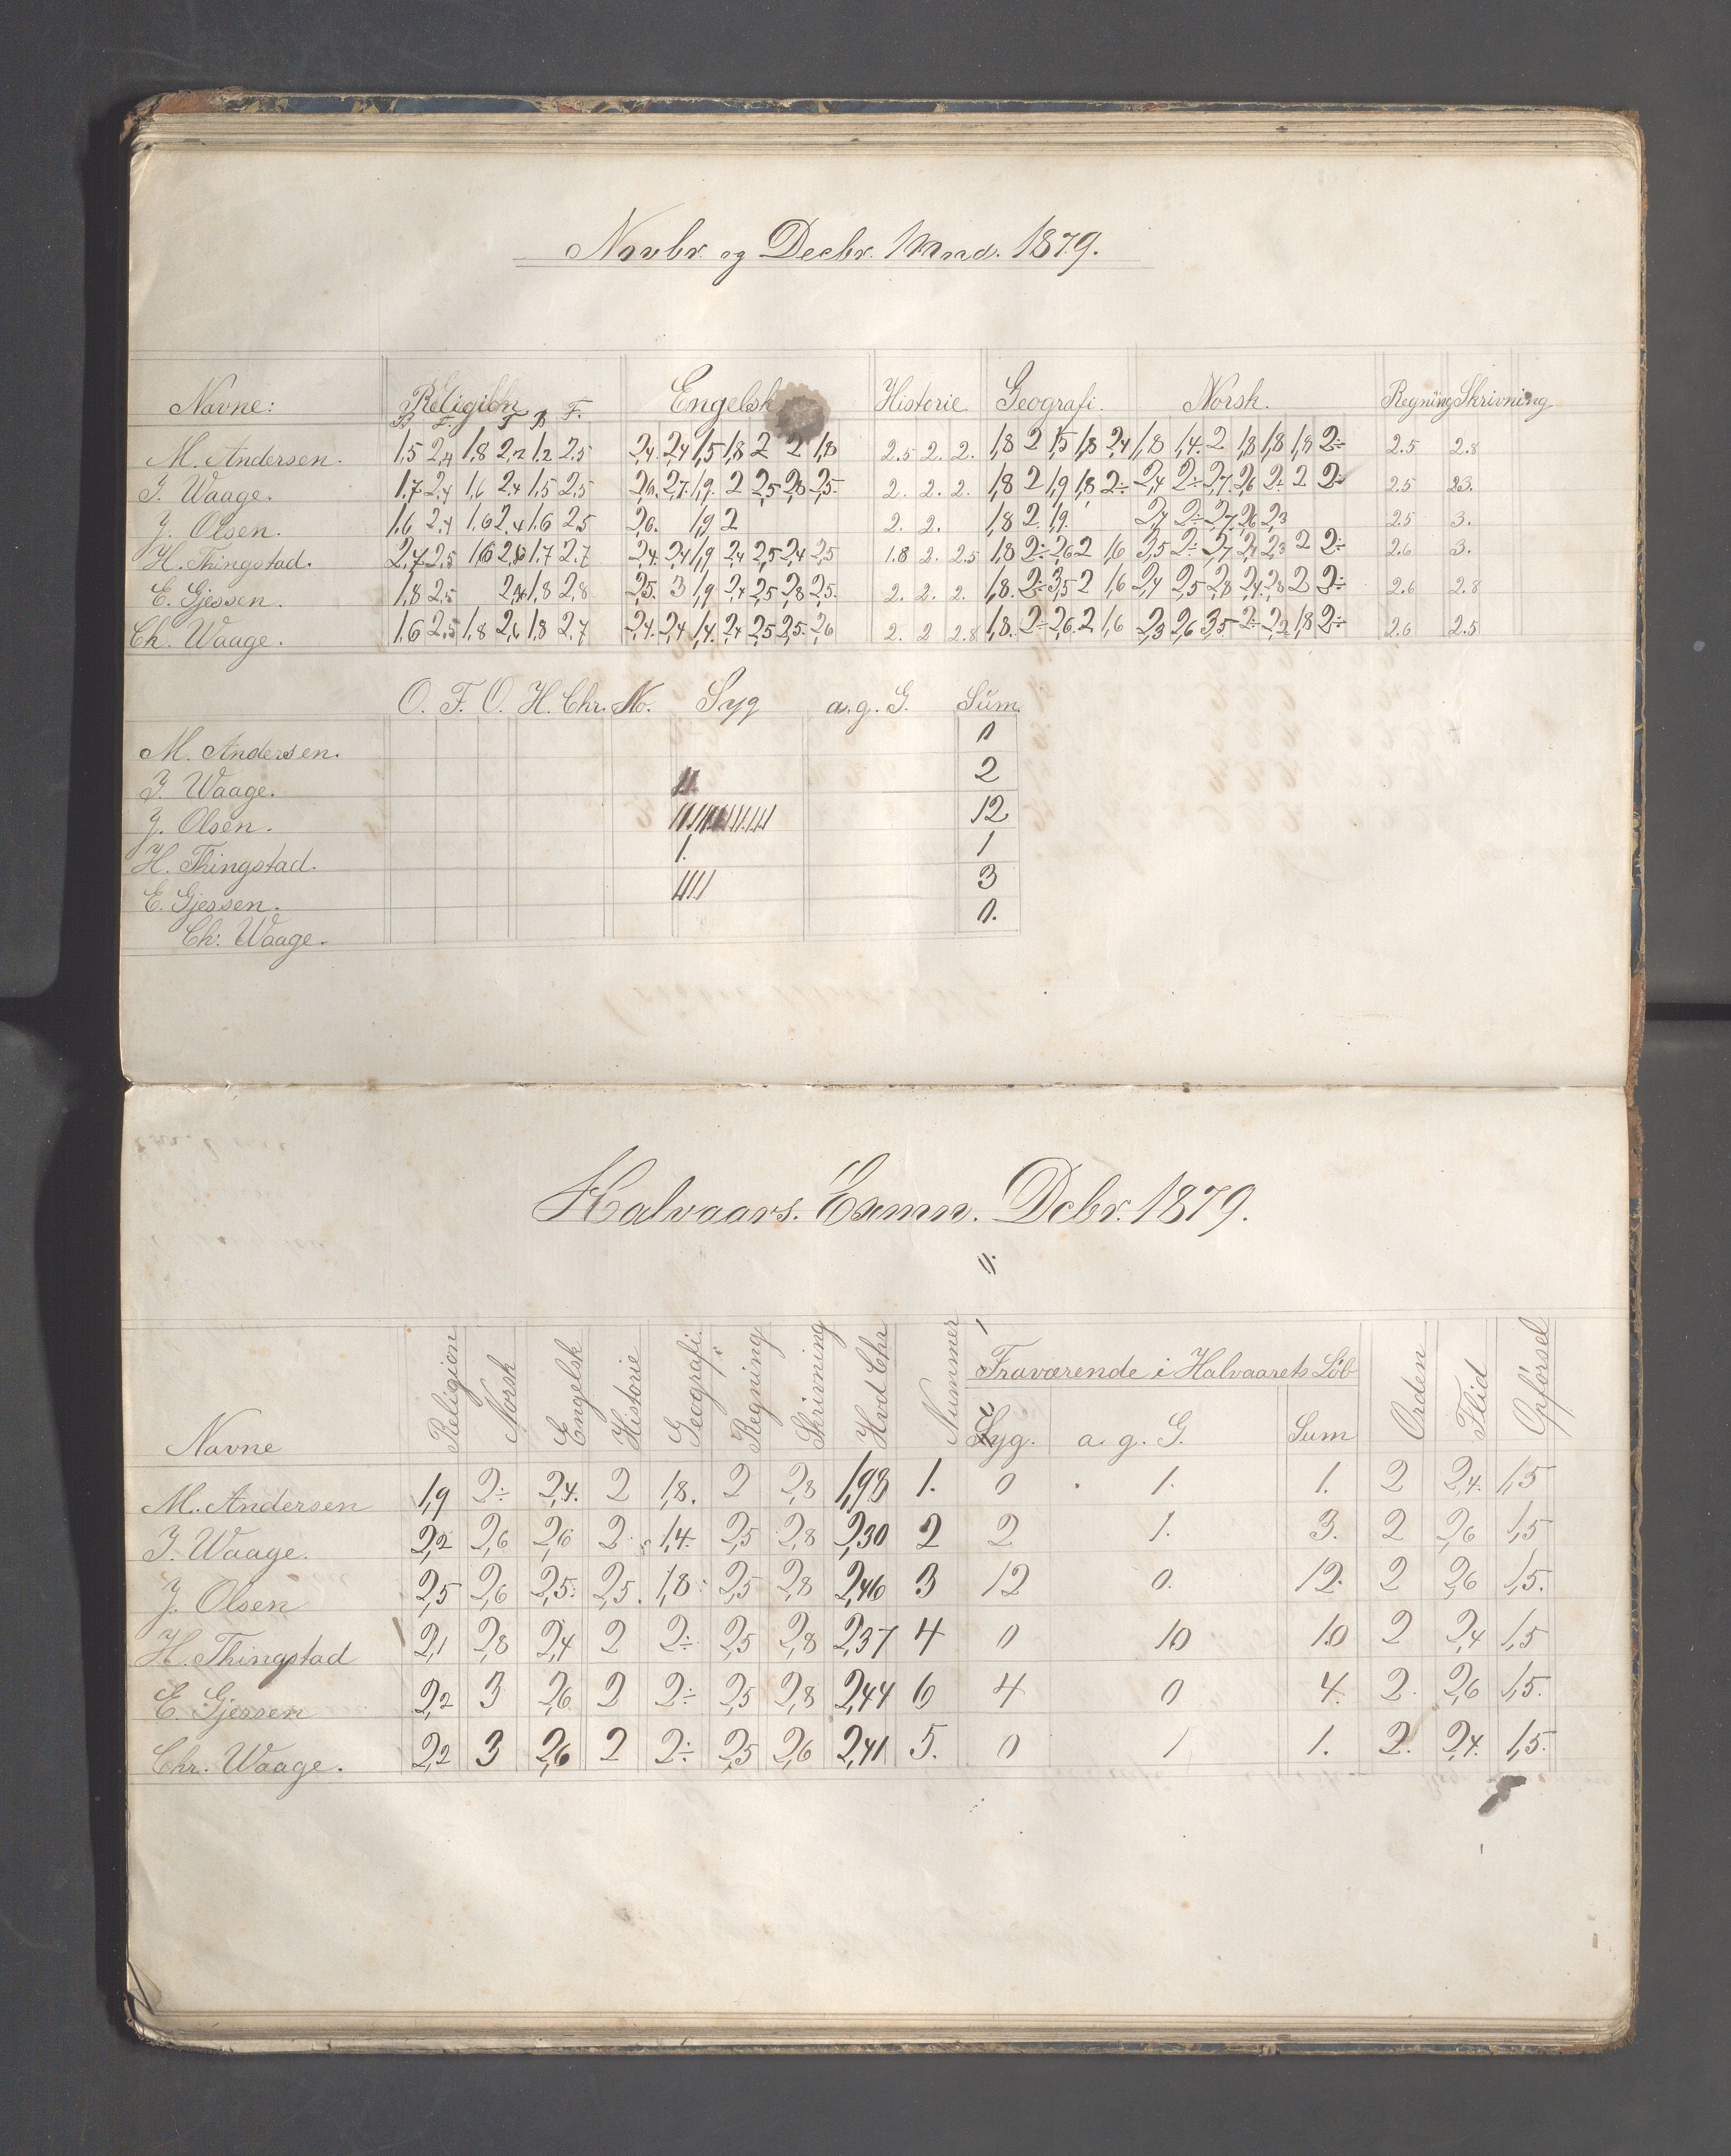 Novbr. og Decbr. Mnd. 1879.
Navne: Religion Engelsk Historie. Geografi. Norsk. Regning Skrivning
B F. F B F.
M. Andersen. 1,5 2,4 1,8 2,2 1,2 2,5 2,4. 2,4 1,5 1,8 2 2 1,8 2.5 2. 2. 1,8 2 1,5 1,8 2,4 1,8 1,4. 2 1,8 1,8 1,8 2÷ 2.5 2.8
J. Waage. 1,7 2,4 1,6 2,4 1,5 2,5 2,6. 2,7. 1,9. 2 2,5 2,8 2,5. 2. 2. 2. 1,8 2 1,9 1,8 2÷ 2,4 2÷ 2,7. 2,6 2÷ 2 2÷ 2.5 2.3.
J. Olsen. 1,6 2,4 1,6 2,4 1,6 2,5 2,6. 1,9 2 2. 2. 1,8 2. 1,9. 2,4 2÷ 2,7. 2,6 2,3 2.5 3.
H. Thingstad. 2,7 2,5 1,6 2,6 1,7 2,7 2,4. 2,4 1,9 2,4 2,5 2,4 2,5 1.8 2. 2.5 1,8 2÷ 2,6 2 1,6 3,5 2÷ 2,7 2,4 2,3 2 2÷ 2.6 3.
E. Gjessen. 1,8 2,5 2,4 1,8 2,8 2,5. 3 1,9 2,4 2,5 2,8 2,5. 2. 2. 2. 1,8. 2÷ 3,5 2 1,6 2,4 2,5 2,8 2,4. 2,8 2 2÷ 2.6 2.8
Ch. Waage. 1,6 2,5 1,8 2,6 1,8 2,7 2,4. 2,4 1,4. 2,4 2,5 2,5. 2,6 2. 2 2.8 1,8. 2÷ 2,6. 2 1,6 2,3 2,6 3,5 2÷ 2,2 1,8 2÷ 2.6 2.5
O. F. O. H. Chr. No. Syg a. g. G. Sum.
M. Andersen. 0
J. Waage. 11. 2
J. Olsen. 12
H. Thingstad. 1. 1
E. Gjessen. 3
Ch: Waage. 0.
Halvaars. Exmn. Dcbr. 1879.
Navne Religion Norsk Engelsk Historie Geografi. Regning Skrivning Hvd Chr Nummer Fraværende i Halvaarets Löb Orden Flid Opförsel
Syg. a. g. G. Sum
M. Andersen 1,9 2÷ 2,4. 2 1,8. 2 2,8 1,98 1. 0 1. 1. 2 2,4. 1,5
J. Waage. 2,2 2,6 2,6 2 1,4. 2,5 2,8 2,30 2 2 1. 3. 2 2,6 1,5
J. Olsen 2,5 2,6 2,5. 2,5. 1,8 2,5 2,8 2,46 3 12 0. 12. 2 2,6 1,5.
H. Thingstad 2,1 2,8 2,4 2 2÷ 2,5 2,8 2,37 4 0 10 10 2 2,4 1,5
E. Gjessen 2,2 3 2,6 2 2÷ 2,5 2,8 2,44 6 4 0 4. 2. 2,6 1,5.
Chr. Waage. 2,2 3 2,6 2 2÷ 2,5 2,6 2,41 5. 0 1 1. 2. 2,4. 1,5.